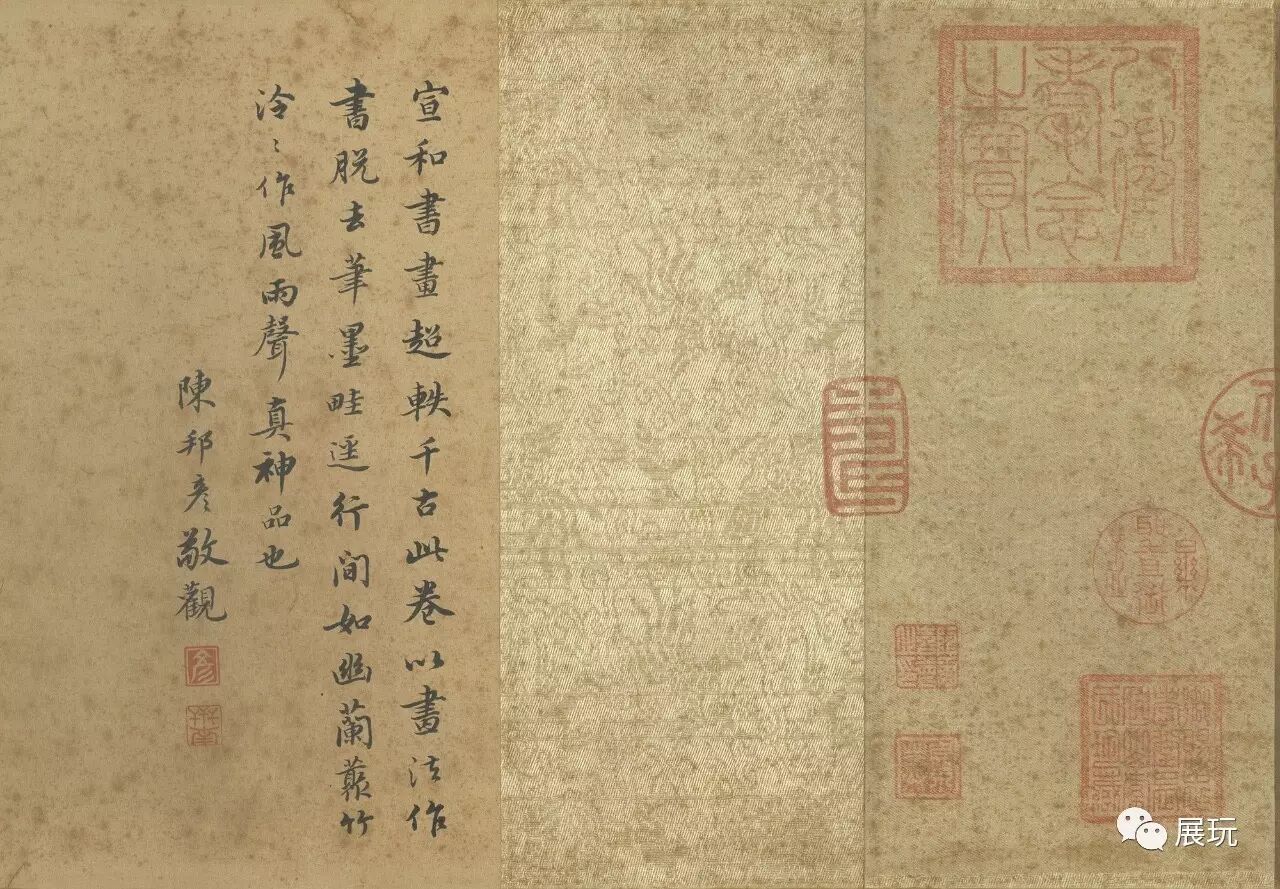 八徵耄念之寶
宣和書畫超軼千古此卷以畫法作
書脫去筆墨畦逕行間如幽蘭叢竹
泠〻作風雨聲真神品也
陳邦彥敬觀
展玩